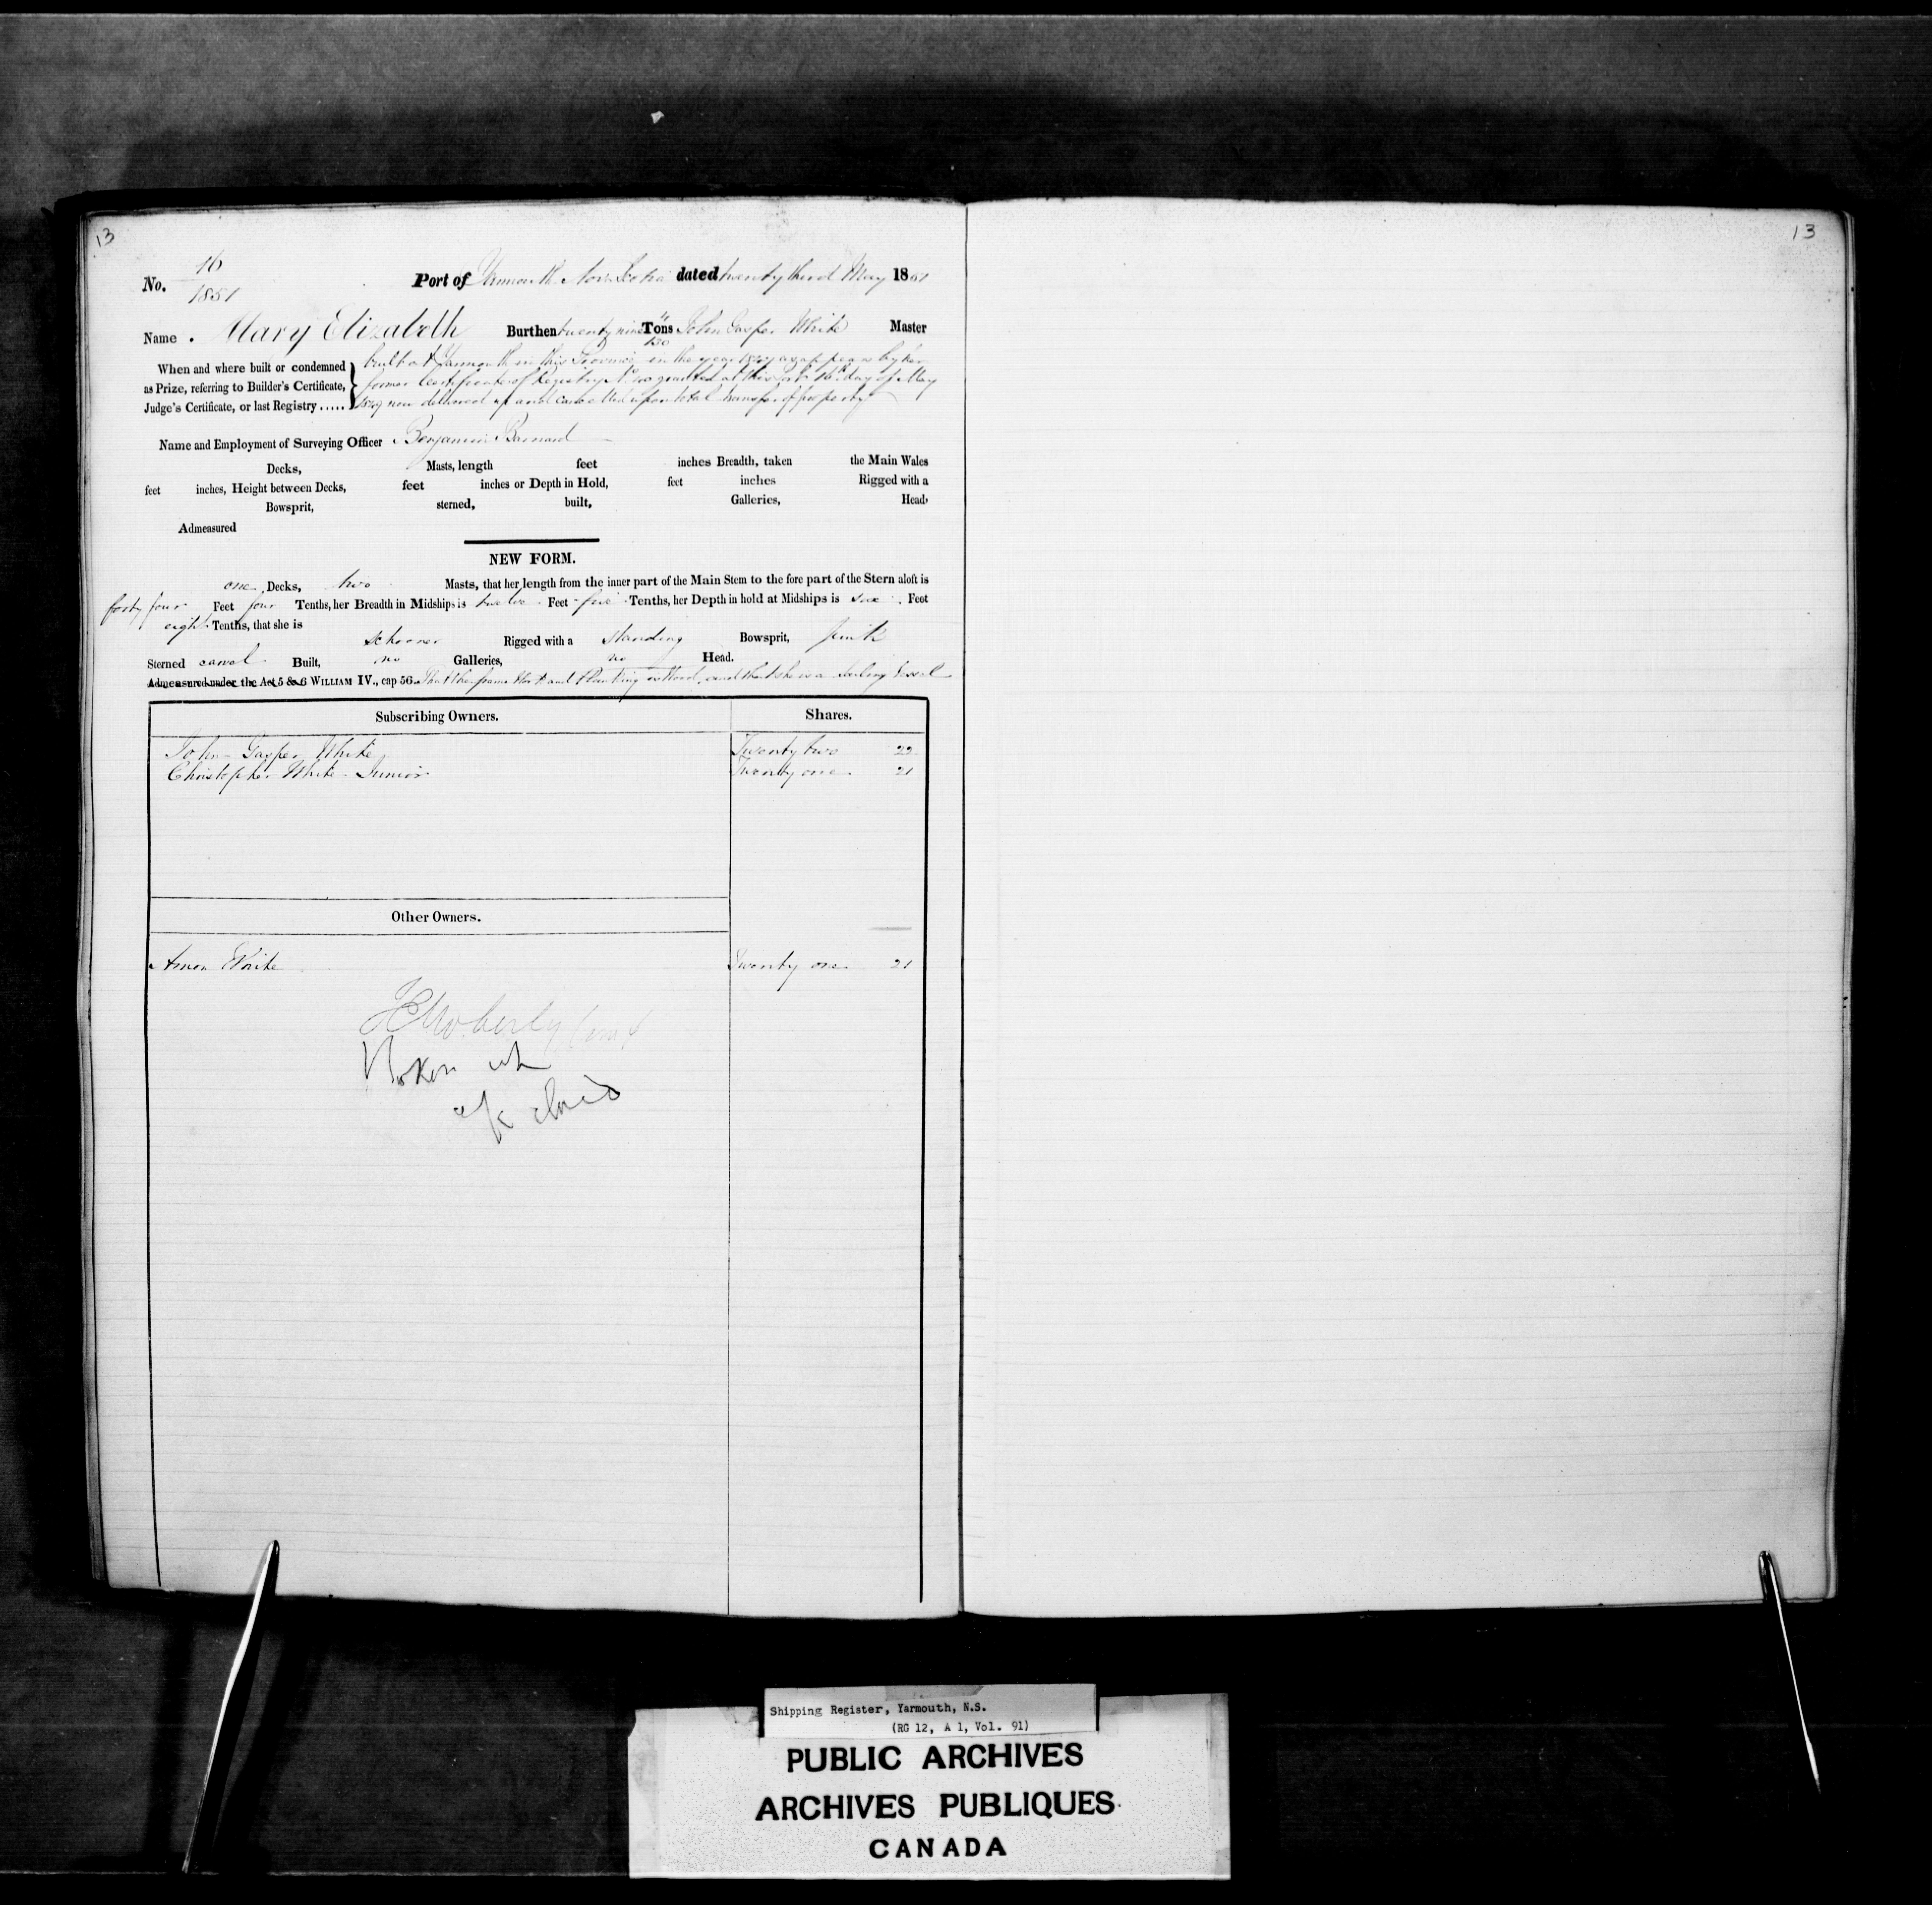 13
13
No. 16
1851
Port of Yarmouth Nova Scotia dated twenty third May 1851
Name Mary Elizabeth Burthen twenty nine Tons 4/130 John Gasper White Master
When and where built or condemned
as Prize, referring to Builder's Certificate,
Judge's Certificate, or last Registry .....
built at Yarmouth in this Province in the year as appears by her
former Certificate of Registry No. granted at this Port 16th day of May
now delivered up and cancelled upon total transfer of property
Name and Employment of Surveying Officer Benjamin Barnard
Decks, Masts, length feet inches Breadth, taken the Main Wales
feet inches, Height between Decks, feet inches or Depth in Hold, feet inches Rigged with a
Bowsprit, sterned, built, Galleries, Head,
Admeasured
NEW FORM.
one Decks, two Masts, that her length from the inner part of the Main Stem to the fore part of the Stern aloft is
forty four Feet four Tenths, her Breadth in Midships is twelve Feet five Tenths, her Depth in hold at Midships is six Feet
eight Tenths, that she is
schooner Rigged with a standing Bowsprit,
Sterned carvel Built, no Galleries, no Head.
Admeasured under the Act 5 & 6 WILLIAM IV., cap 56. That her frame Work and Planking is Wood, and that she is a Sailing Vessel
Subscribing Owners. Shares.
John Gasper White Twenty two 22
Christopher White Junior Twenty one 21
Other Owners.
Amon White Twenty one 21
Broken up
Shipping Register, Yarmouth, N.S.
(RG 12, A 1, Vol. 91)
PUBLIC ARCHIVES
ARCHIVES PUBLIQUES
CANADA